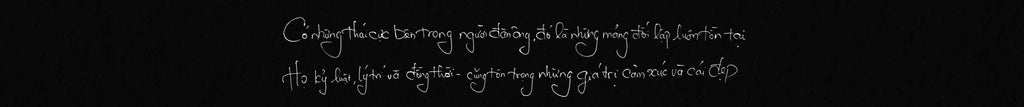 Có những thái cực bên trong người đàn ông, đó là những mảng đối lập, luôn tồn tại
Họ kỷ luật, lý trí và đồng thời - cũng tôn trọng những giá trị cảm xúc và cái đẹp